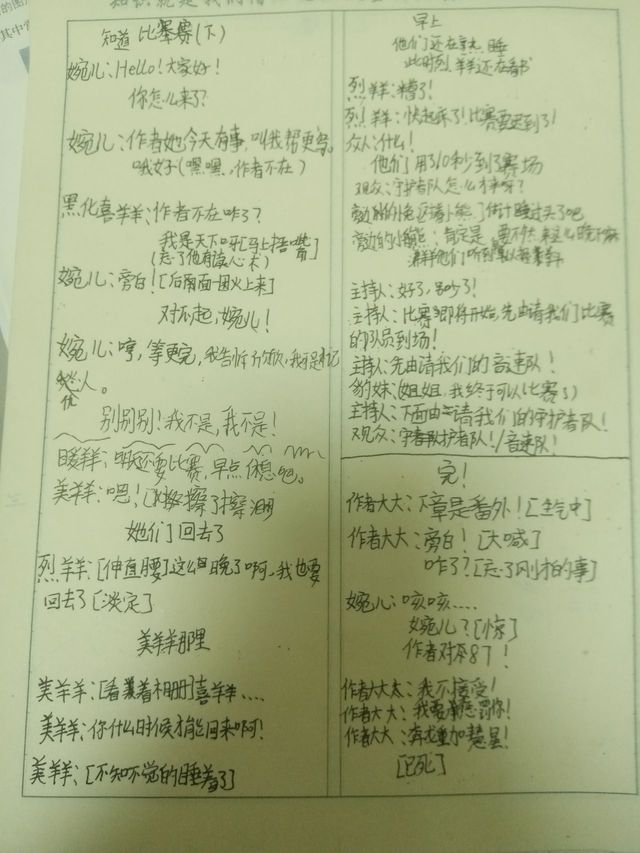 知识就是我们
的图
其中
知道 比赛赛(下)
婉儿:Hello!大家好!
你怎么来了?
婉儿:作者她今天有事,叫我帮更。
哦好(嘿嘿,作者不在)
黑化喜羊羊:作者不在咋了?
我是天下 [马上捂嘴]
(忘了他有读心术)
婉儿:旁白![后面一团火上来]
对不起,婉儿!
婉儿:哼,等更完,我告诉
人。
别别别!我不是,我不是!
暖羊羊:明天还要比赛,早点休息吧。
美羊羊:嗯![擦了擦泪]
她们回去了
烈羊羊:[伸直腰]这么晚了啊,我也要
回去了[淡定]
美羊羊那里
美羊羊:[看着相册]喜羊羊....
美羊羊:你什么时候才能回来啊!
美羊羊:[不知不觉的睡着了]
早上
他们还在熟睡
此时烈羊羊还在看书
烈羊羊:糟了!
烈羊羊:快起床了!比赛要迟到了!
众人:什么!
他们用了10秒到了赛场
观众:守护者队怎么才来呀?
旁边的小兔[对着小熊]估计睡过头了吧
旁边的小熊:肯定是,要不然来这么晚干嘛
主持人:好了,别吵了!
主持人:比赛即将开始,先由请我们比赛
的队员到场!
主持人:先由请我们的音速队!
豹妹:(姐姐,我终于可以比赛了)
主持人:下面由请我们的守护者队!
观众:守护者队!/音速队!
完!
作者大大:下章是番外![生气中]
作者大大:旁白![大喊]
咋了?[忘了刚才的事]
婉儿:咳咳....
婉儿?[惊]
作者对不87!
作者大大:我不接受!
作者大大:我要惩罚你!
作者大大:奔龙重加慧星!
[已死]